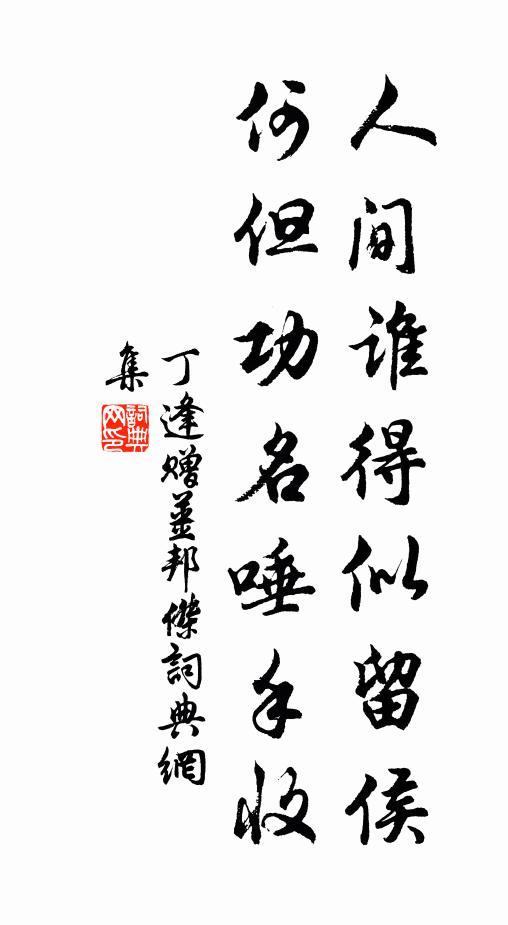 人间谁得似留侯
何但功名唾手收
丁逢赠姜邦傑詞典網
集
詞典
网印